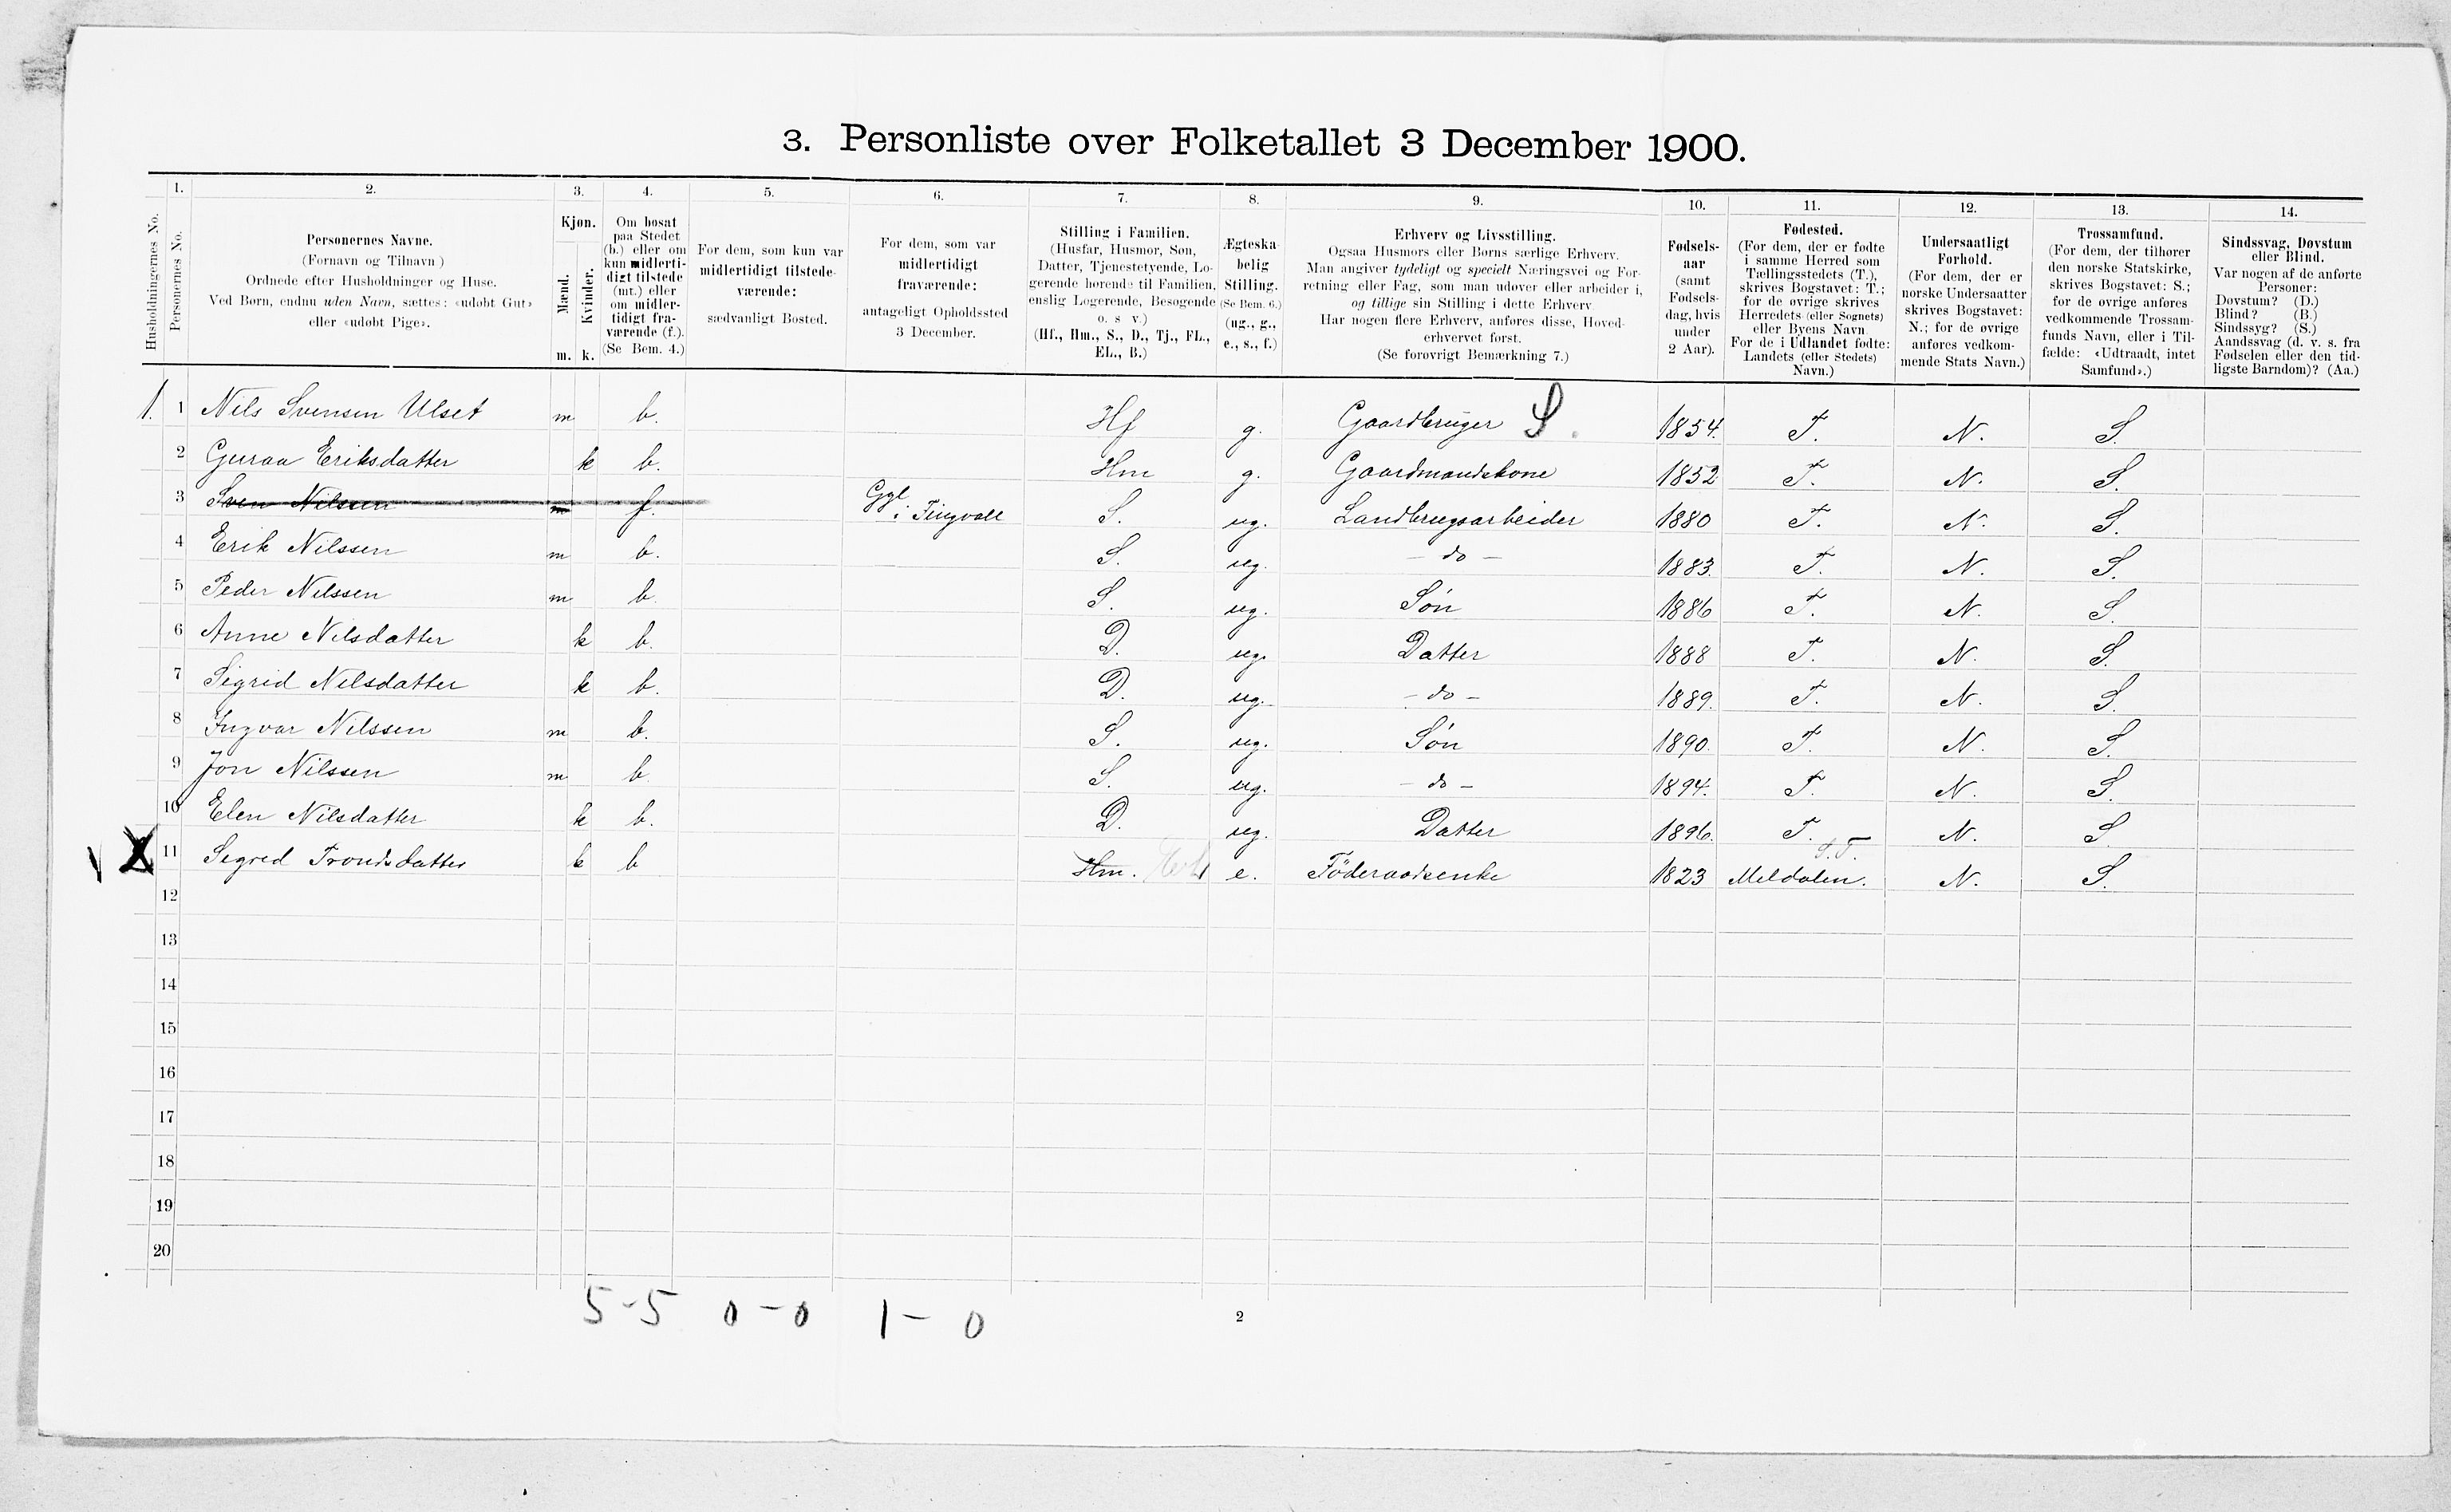 3. Personliste over Folketallet 3 December 1900.
1. 2. 3. 4. 5. 6. 7. 8. 9. 10. 11. 12. 13. 14.
Husholdningernes No.
Personernes No.
Personernes Navne.
(Fornavn og Tilnavn)
Ordnede efter Husholdninger og Huse.
Ved Børn, endnu uden Navn, sættes: «udøbt Gut»
eller «udøbt Pige».
Kjøn.
Mænd.
Kvinder.
m. k.
Om bosat
paa Stedet
(b.) eller om
kun midlerti-
digt tilstede
(mt.) eller
om midler-
tidigt fra-
værende (f.).
(Se Bem. 4.)
For dem, som kun var
midlertidigt tilstede-
værende:
sædvanligt Bosted.
For dem, som var
midlertidigt
fraværende:
antageligt Opholdssted
3 December.
Stilling i Familien.
(Husfar, Husmor, Søn,
Datter, Tjenestetyende, Lo-
gerende hørende til Familien,
enslig Logerende, Besøgende
o. s v.)
(Hf., Hm., S., D., Tj., FL.,
EL., B.)
Ægteska-
belig
Stilling.
(Se Bem. 6.)
(ug., g.,
e., s., f.)
Erhverv og Livsstilling.
Ogsaa Husmors eller Børns særlige Erhverv.
Man angiver tydeligt og specielt Næringsvei og For-
retning eller Fag, som man udøver eller arbeider i,
og tillige sin Stilling i dette Erhverv
Har nogen flere Erhverv, anføres disse, Hoved-
erhvervet først.
(Se forøvrigt Bemærkning 7.)
Fødsels-
aar
(samt
Fødsels-
dag, hvis
under
2 Aar).
Fødested.
(For dem, der er fødte
i samme Herred som
Tællingsstedets (T.),
skrives Bogstavet: T.;
for de øvrige skrives
Herredets (eller Sognets)
eller Byens Navn
For de i Udlandet fødte:
Landets (eller Stedets)
Navn.)
Undersaatligt
Forhold.
(For dem, der er
norske Undersaatter
skrives Bogstavet:
N.; for de øvrige
anføres vedkom-
mende Stats Navn.)
Trossamfund.
(For dem, der tilhører
den norske Statskirke,
skrives Bogstavet: S.;
for de øvrige anføres
vedkommende Trossam-
funds Navn, eller i Til-
fælde: «Udtraadt, intet
Samfund».)
Sindssvag, Døvstum
eller Blind.
Var nogen af de anførte
Personer:
Døvstum? (D.)
Blind? (B.)
Sindssyg? (S.)
Aandssvag (d. v. s. fra
Fødselen eller den tid-
ligste Barndom)? (Aa.)
1. 1 Nils Svensen Ulset m b. Hf g. Gaardbruger S. 1854. T. N. S.
2 Guraa Eriksdatter k b. Hm g. Gaardmandskone 1852 T. N. S.
3 Sven Nilssen m f. Ggl i Tingvoll S. ug. Landbrugsarbeider 1880 T. N. S.
4 Erik Nilssen m b. S. ug. - do - 1883. T. N. S.
5 Peder Nilssen m b. S. ug. Søn 1886 T. N. S.
6 Anne Nilsdatter k b. D. ug. Datter 1888 T. N. S.
7 Sigrid Nilsdatter k b. D. ug. - do - 1889. T. N. S.
8 Ingvar Nilssen m b. S. ug. Søn 1890. T. N. S.
9 Jon Nilssen m b. S. ug. - do - 1894. T. N. S.
10 Elen Nilsdatter k b. D. ug. Datter 1896. T. N. S.
11 Sigred Trondsdatter k b Hm. e. Föderaadsenke 1823 Meldalen. S.T. N. S.
12
13
14
15
16
17
18
19
20
5-5 0-0 1-0
2